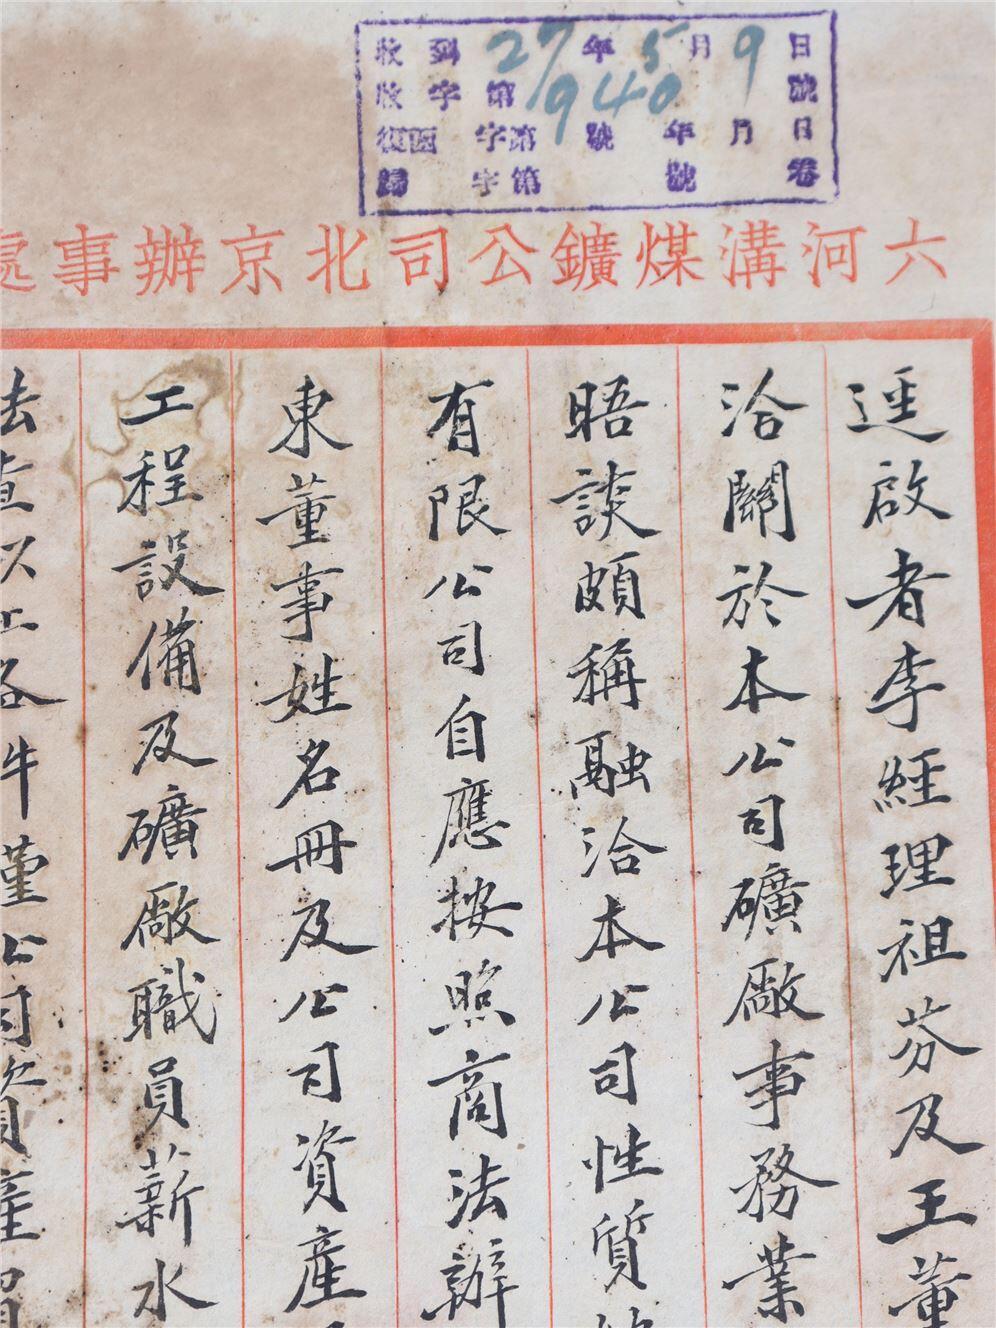 收到 27年5月9日
收字第940號
復函 字第 號 年 月 日
歸 字第 號卷
六河溝煤鑛公司北京辦事處
逕啟者李經理祖芬及王董
洽關於本公司礦廠事務業
晤談頗稱融洽本公司性質
有限公司自應按照商法辦
東董事姓名冊及公司資產
工程設備及礦廠職員薪水
法查以上各件謹公司資產